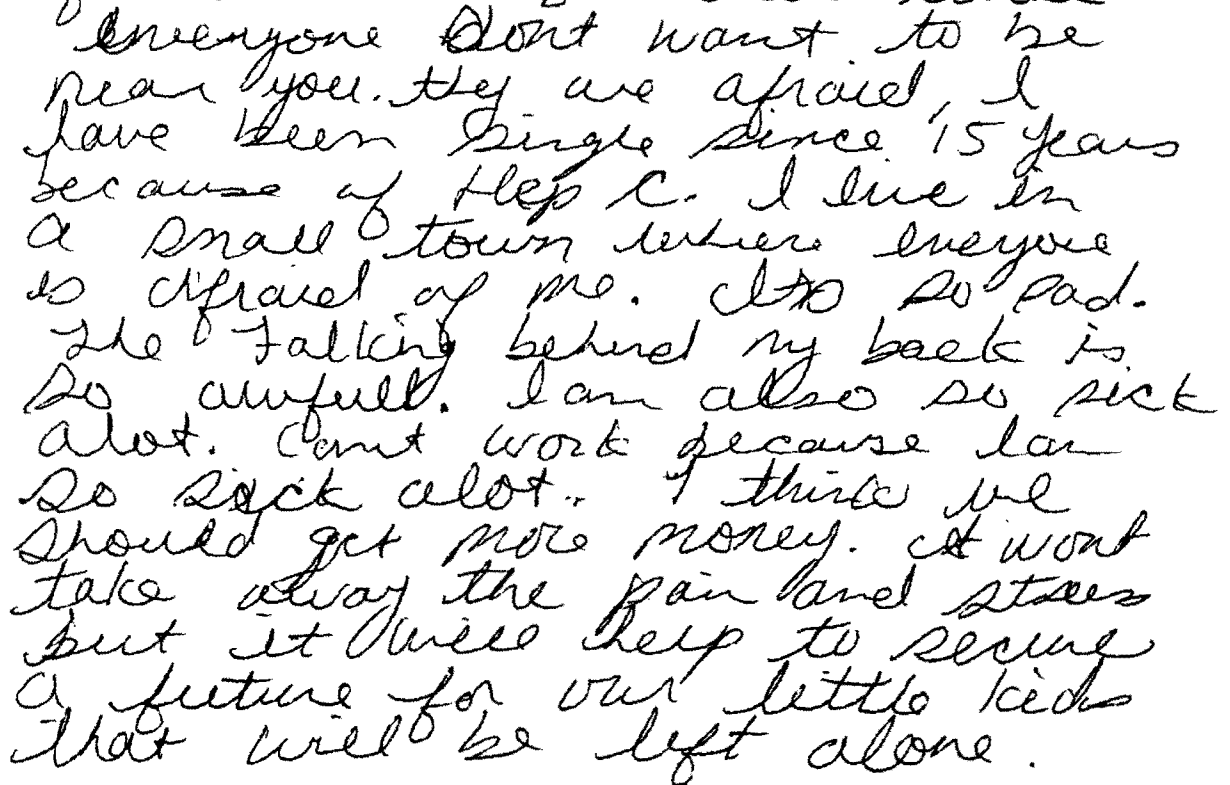 everyone dont want to be
near you. they are afraid, I
have been single since 15 years
because of Hep C. I live in
a small town where everyone
is afraid of me. Its so sad.
The Talking behind my back is
so awfull. I am also so sick
alot. Cant work because I am
so sick alot.. I think we
should get more money. it wont
take away the pain and stress
but it will help to secure
a future for our little kids
that will be left alone.